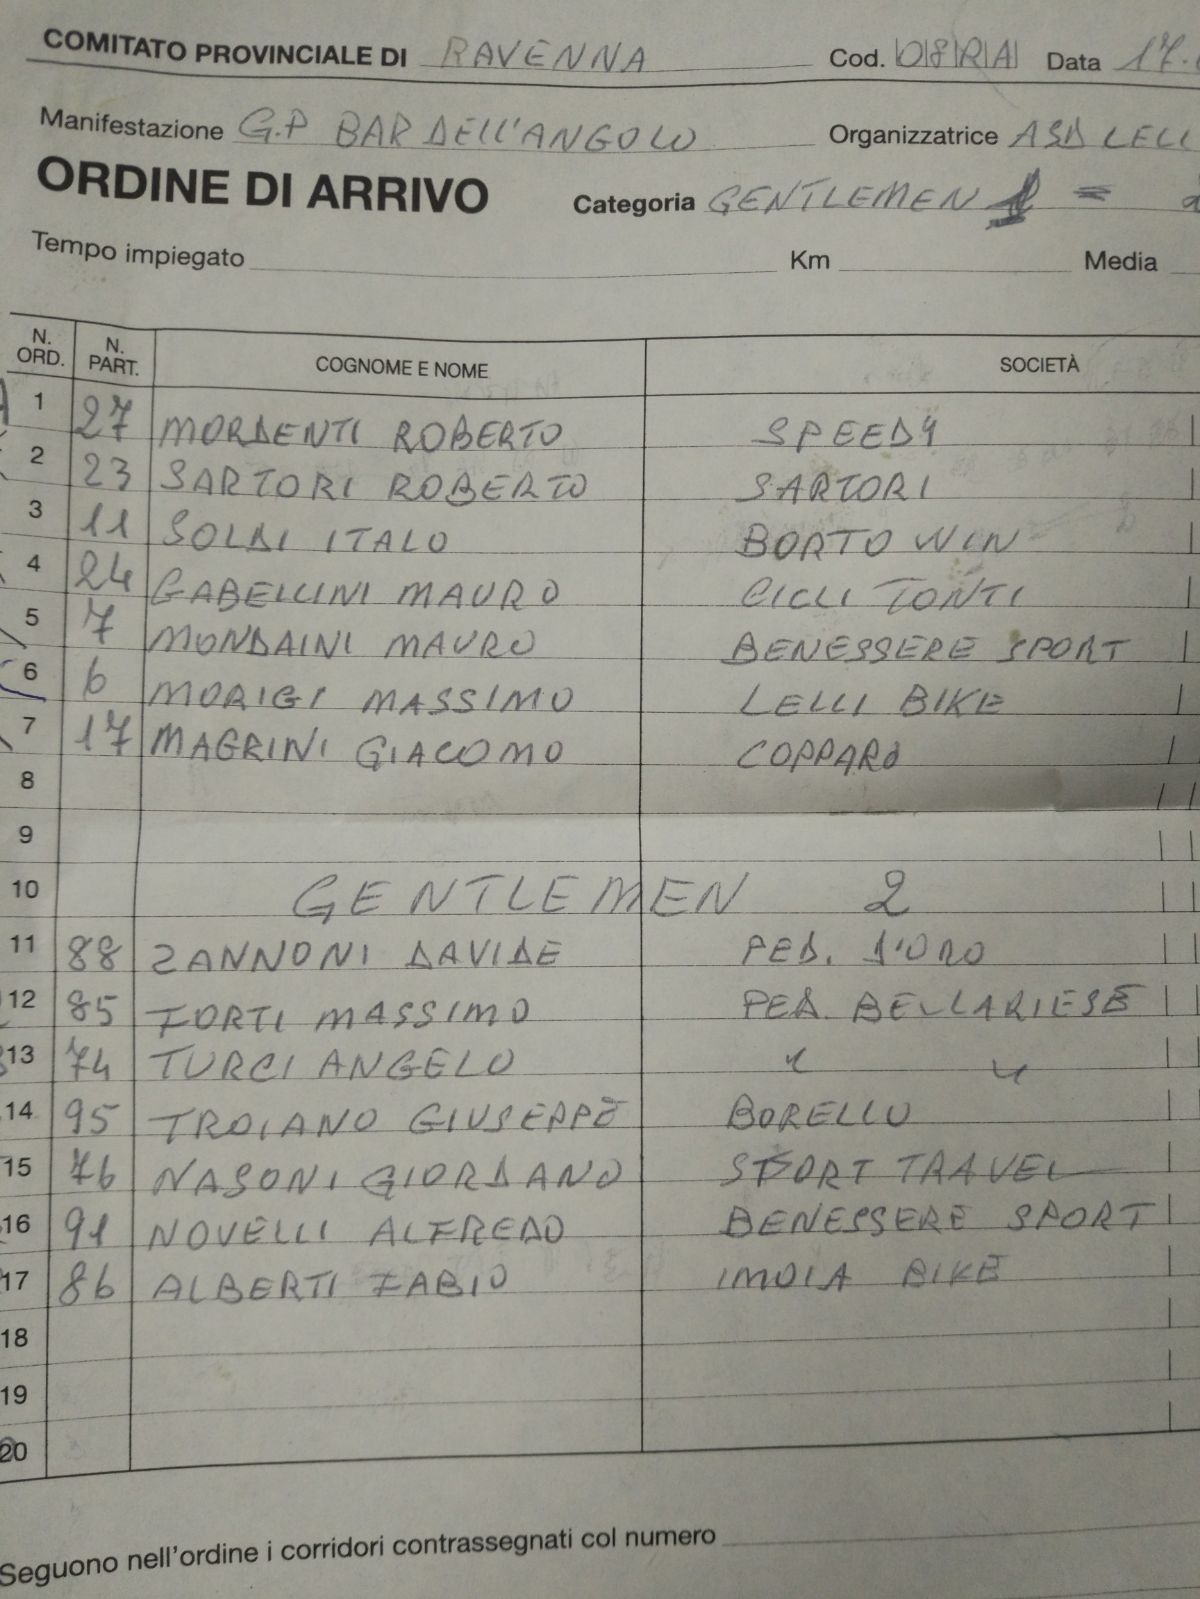 COMITATO PROVINCIALE DI RAVENNA Cod. 08RA Data 17.
Manifestazione G.P BAR DELL'ANGOLO Organizzatrice ASD LELL
ORDINE DI ARRIVO Categoria GENTLEMEN 1 = 2
Tempo impiegato Km Media
N. ORD. N. PART. COGNOME E NOME SOCIETÀ
1 27 MORDENTI ROBERTO SPEEDY
2 23 SARTORI ROBERTO SARTORI
3 11 SOLDI ITALO BORTO WIN
4 24 GABELLINI MAURO CICLI TONTI
5 7 MONDAINI MAURO BENESSERE SPORT
6 6 MORIGI MASSIMO LELLI BIKE
7 17 MAGRINI GIACOMO COPPARO
8
9
10 GENTLEMEN 2
11 88 ZANNONI DAVIDE PED. D'ORO
12 85 FORTI MASSIMO PED. BELLARIESE
13 74 TURCI ANGELO " "
14 95 TROIANO GIUSEPPE BORELLO
15 76 NASONI GIORDANO SPORT TRAVEL
16 91 NOVELLI ALFREDO BENESSERE SPORT
17 86 ALBERTI FABIO IMOLA BIKE
18
19
20
Seguono nell'ordine i corridori contrassegnati col numero